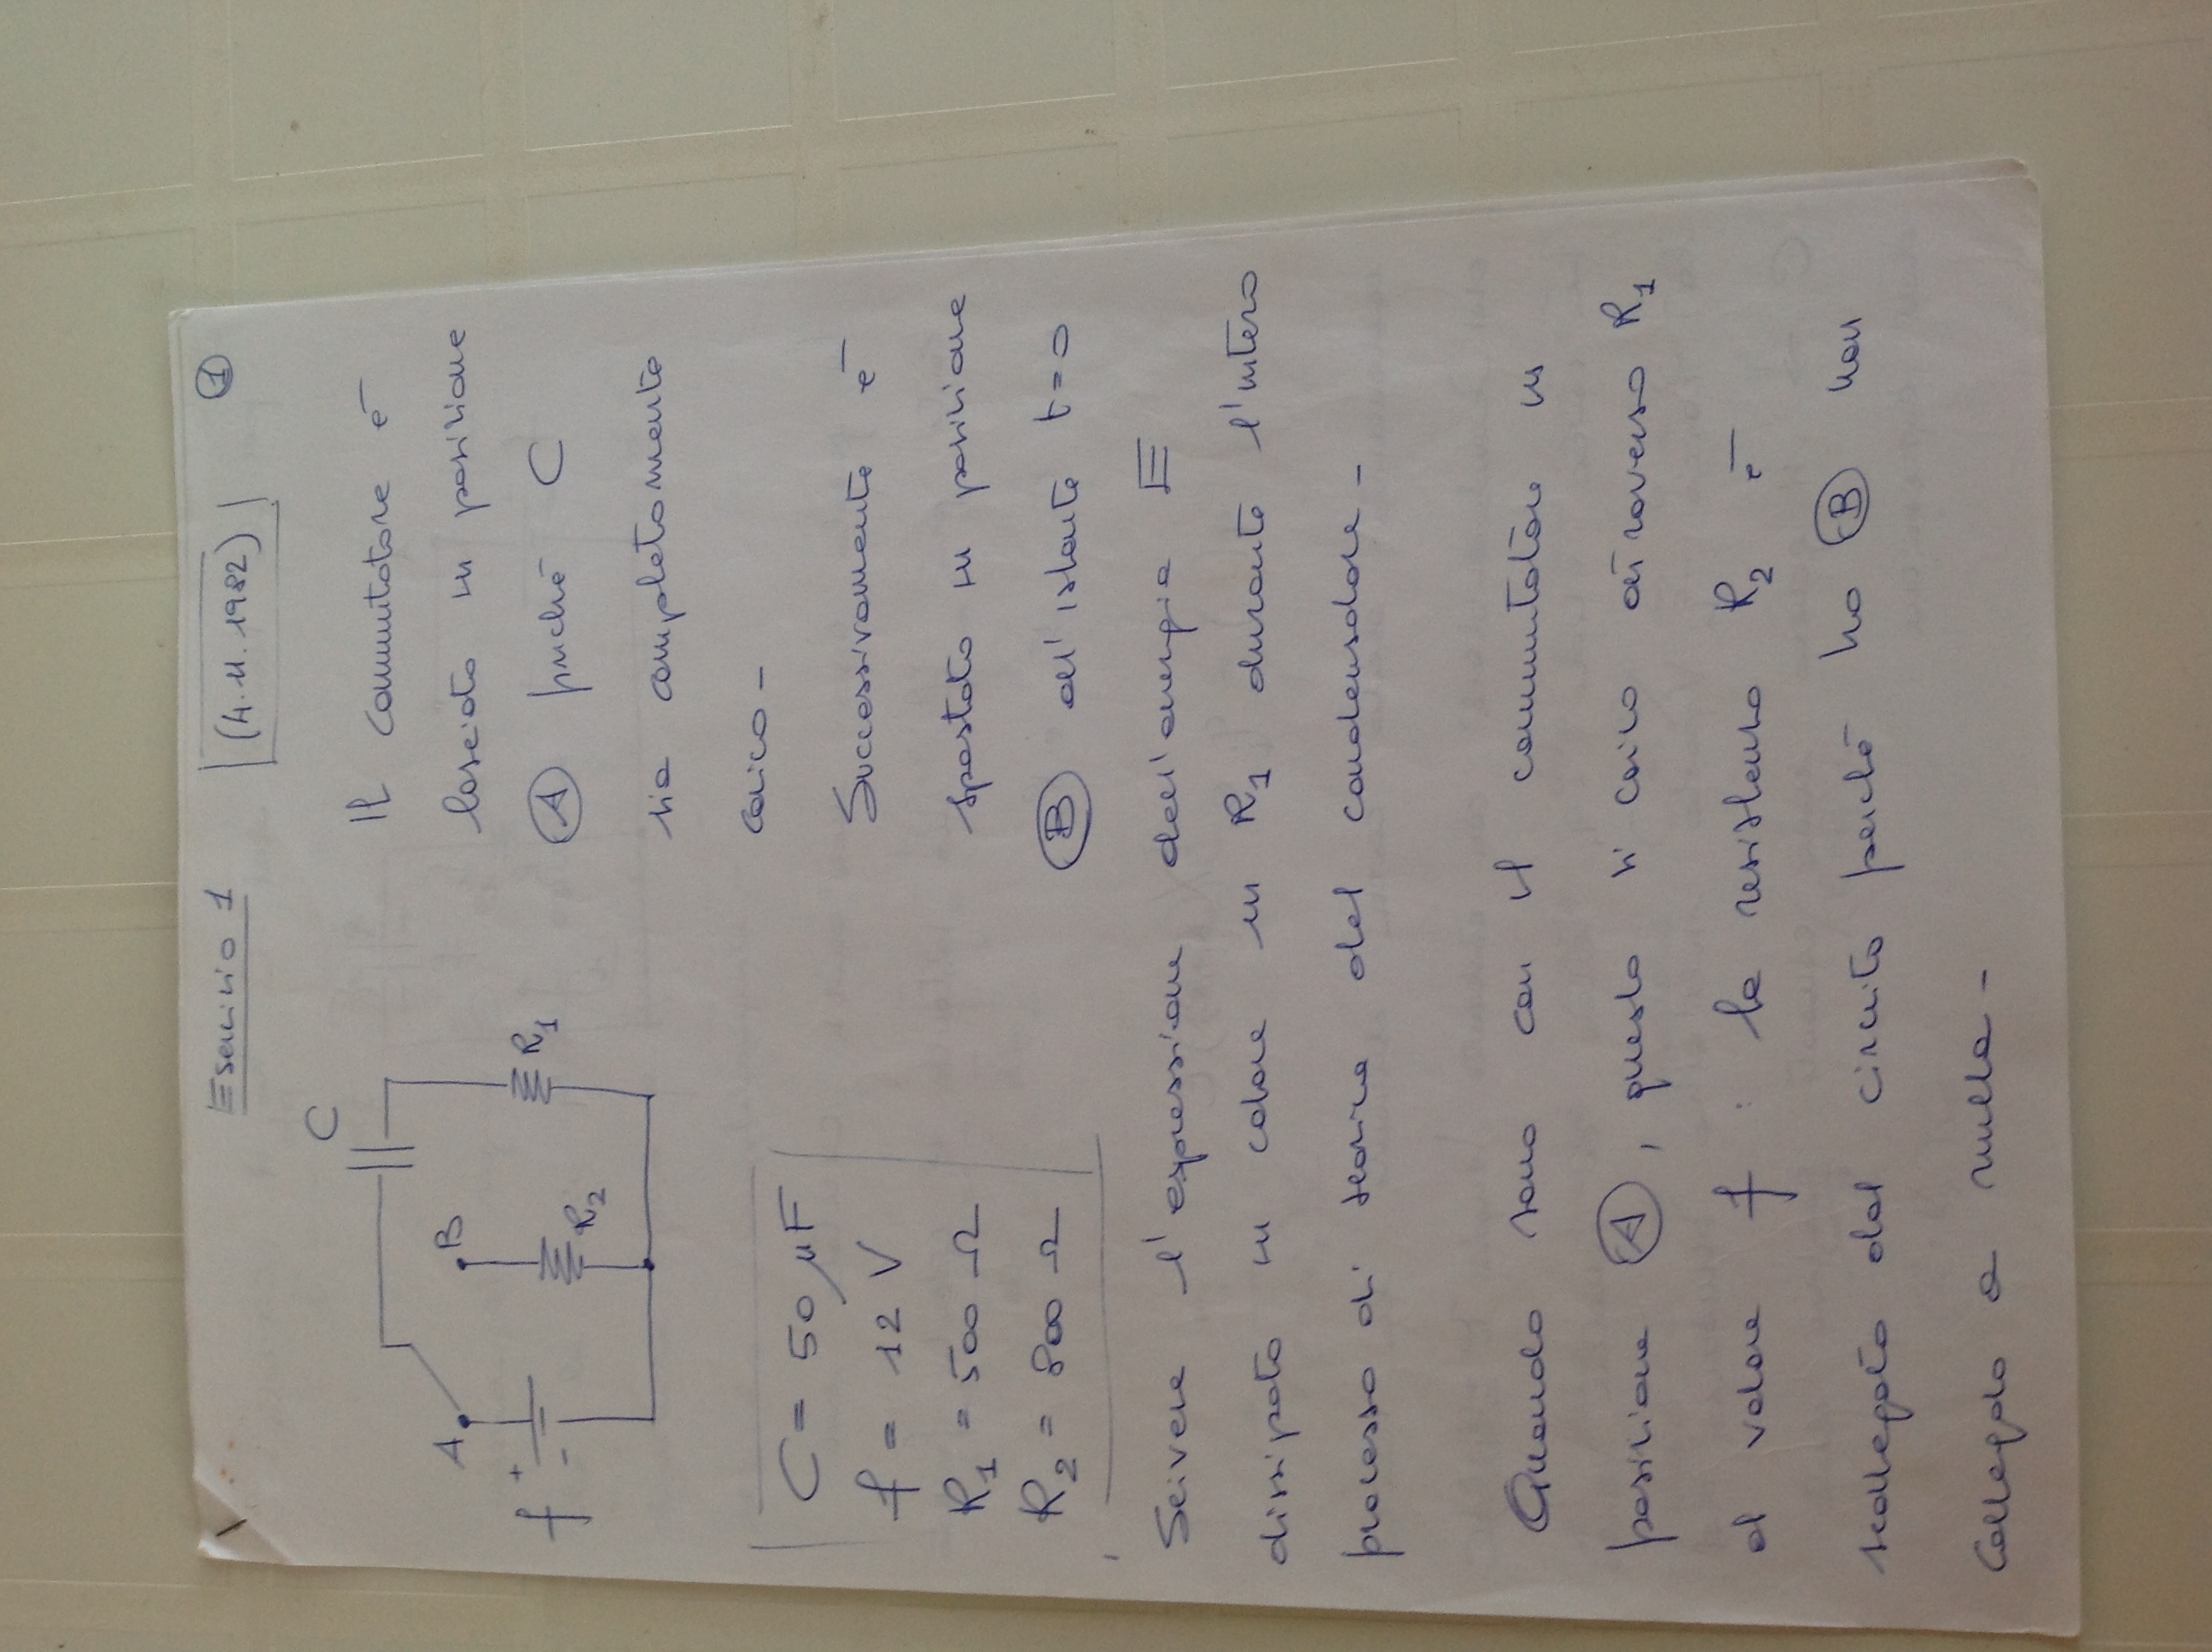 Esercizio 1 (4.11.1982) 1
C
A B
+
f
-
R2
R1
Il commutatore è
lasciato in posizione
A finché C
sia completamente
carico -
Successivamente è
spostato in posizione
B all'istante t=0
C = 50 μF
f = 12 V
R1 = 500 Ω
R2 = 800 Ω
Scrivere l'espressione dell'energia E
dissipata in calore in R1 durante l'intero
processo di scarica del condensatore -
Quando sono con il commutatore in
posizione A, questo si carica attraverso R1
al valore f : la resistenza R2 è
scollegata dal circuito perché ho B non
collegato a nulla -